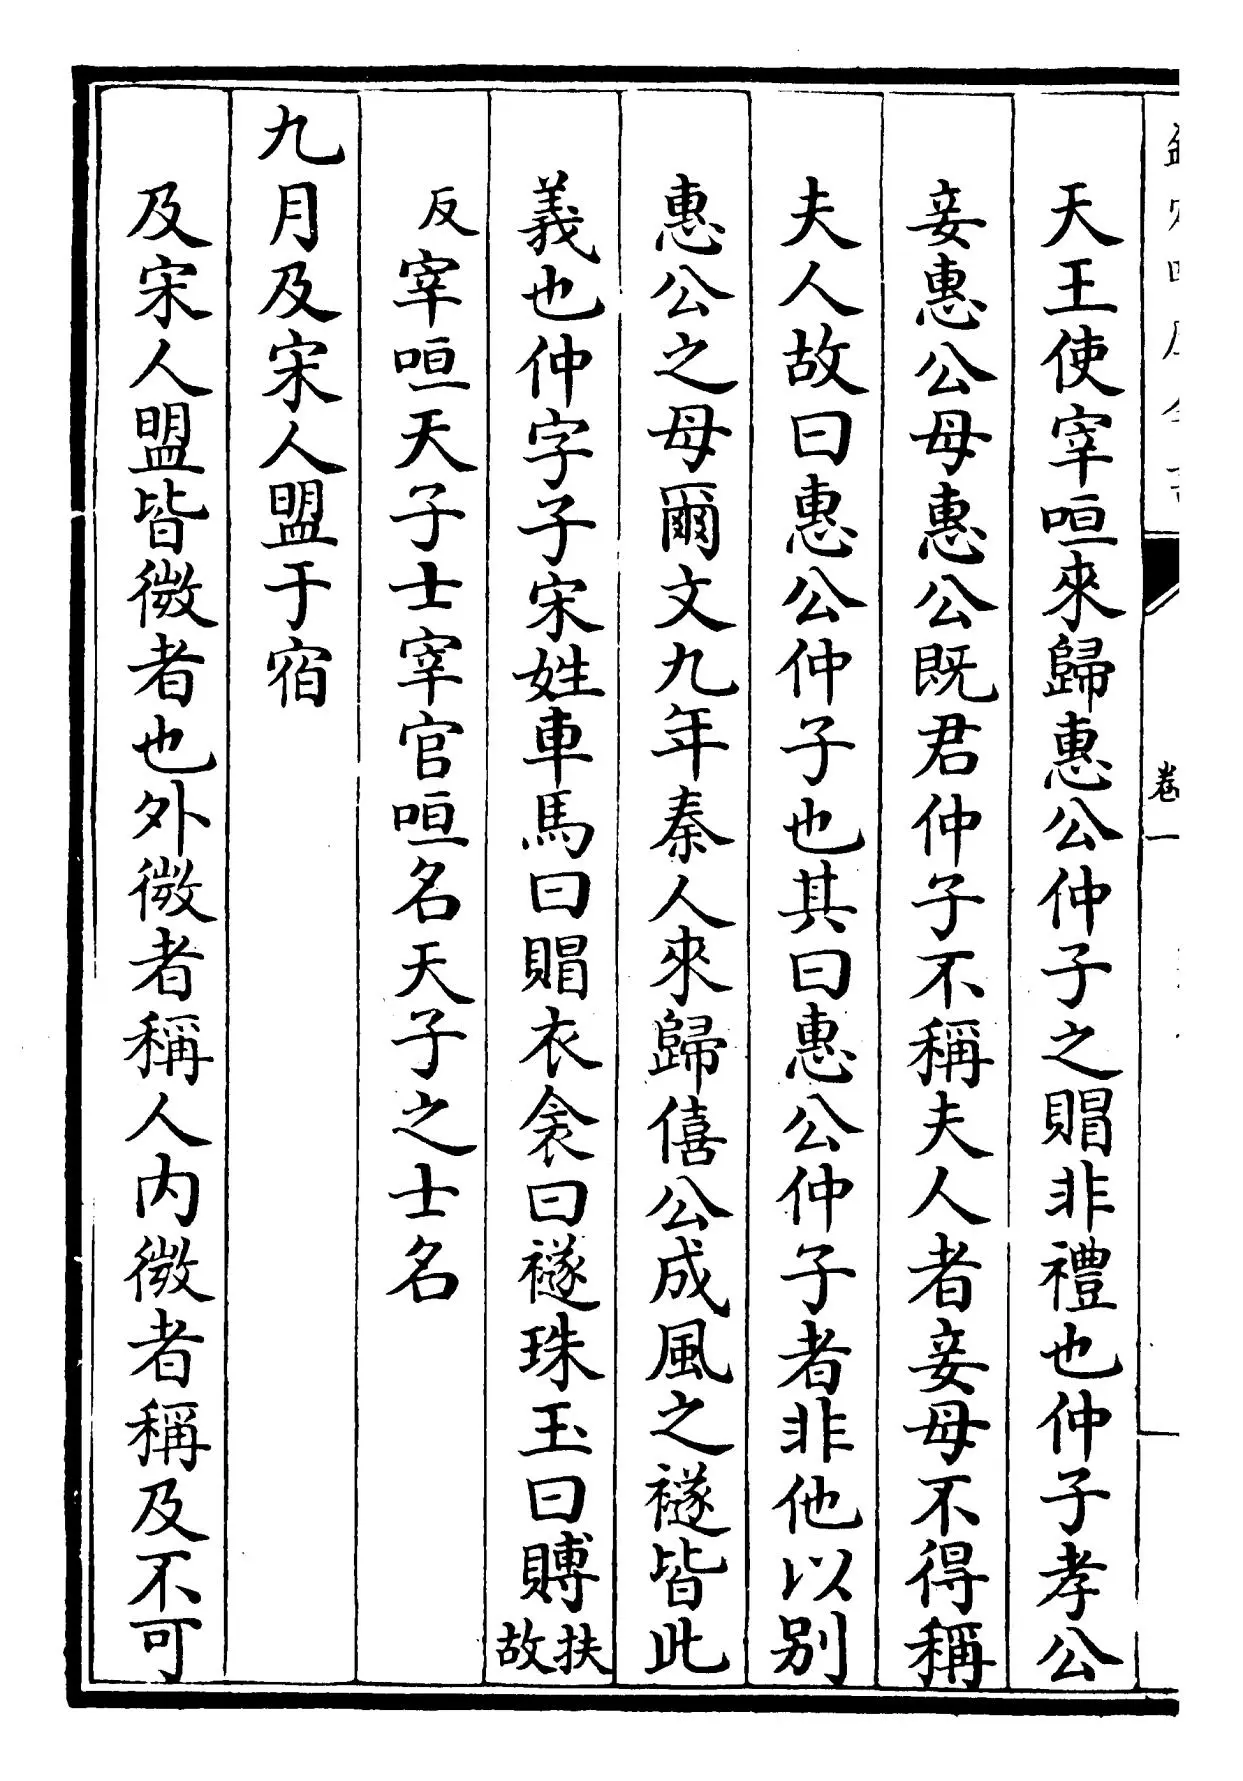 卷一
天王使宰咺來歸惠公仲子之賵非禮也仲子孝公
妾惠公母惠公既君仲子不稱夫人者妾母不得稱
夫人故曰惠公仲子也其曰惠公仲子者非他以别
惠公之母爾文九年秦人來歸僖公成風之襚皆此
義也仲字子宋姓車馬曰賵衣衾曰襚珠玉曰賻扶故
反宰咺天子士宰官咺名天子之士名
九月及宋人盟于宿
及宋人盟皆微者也外微者稱人内微者稱及不可